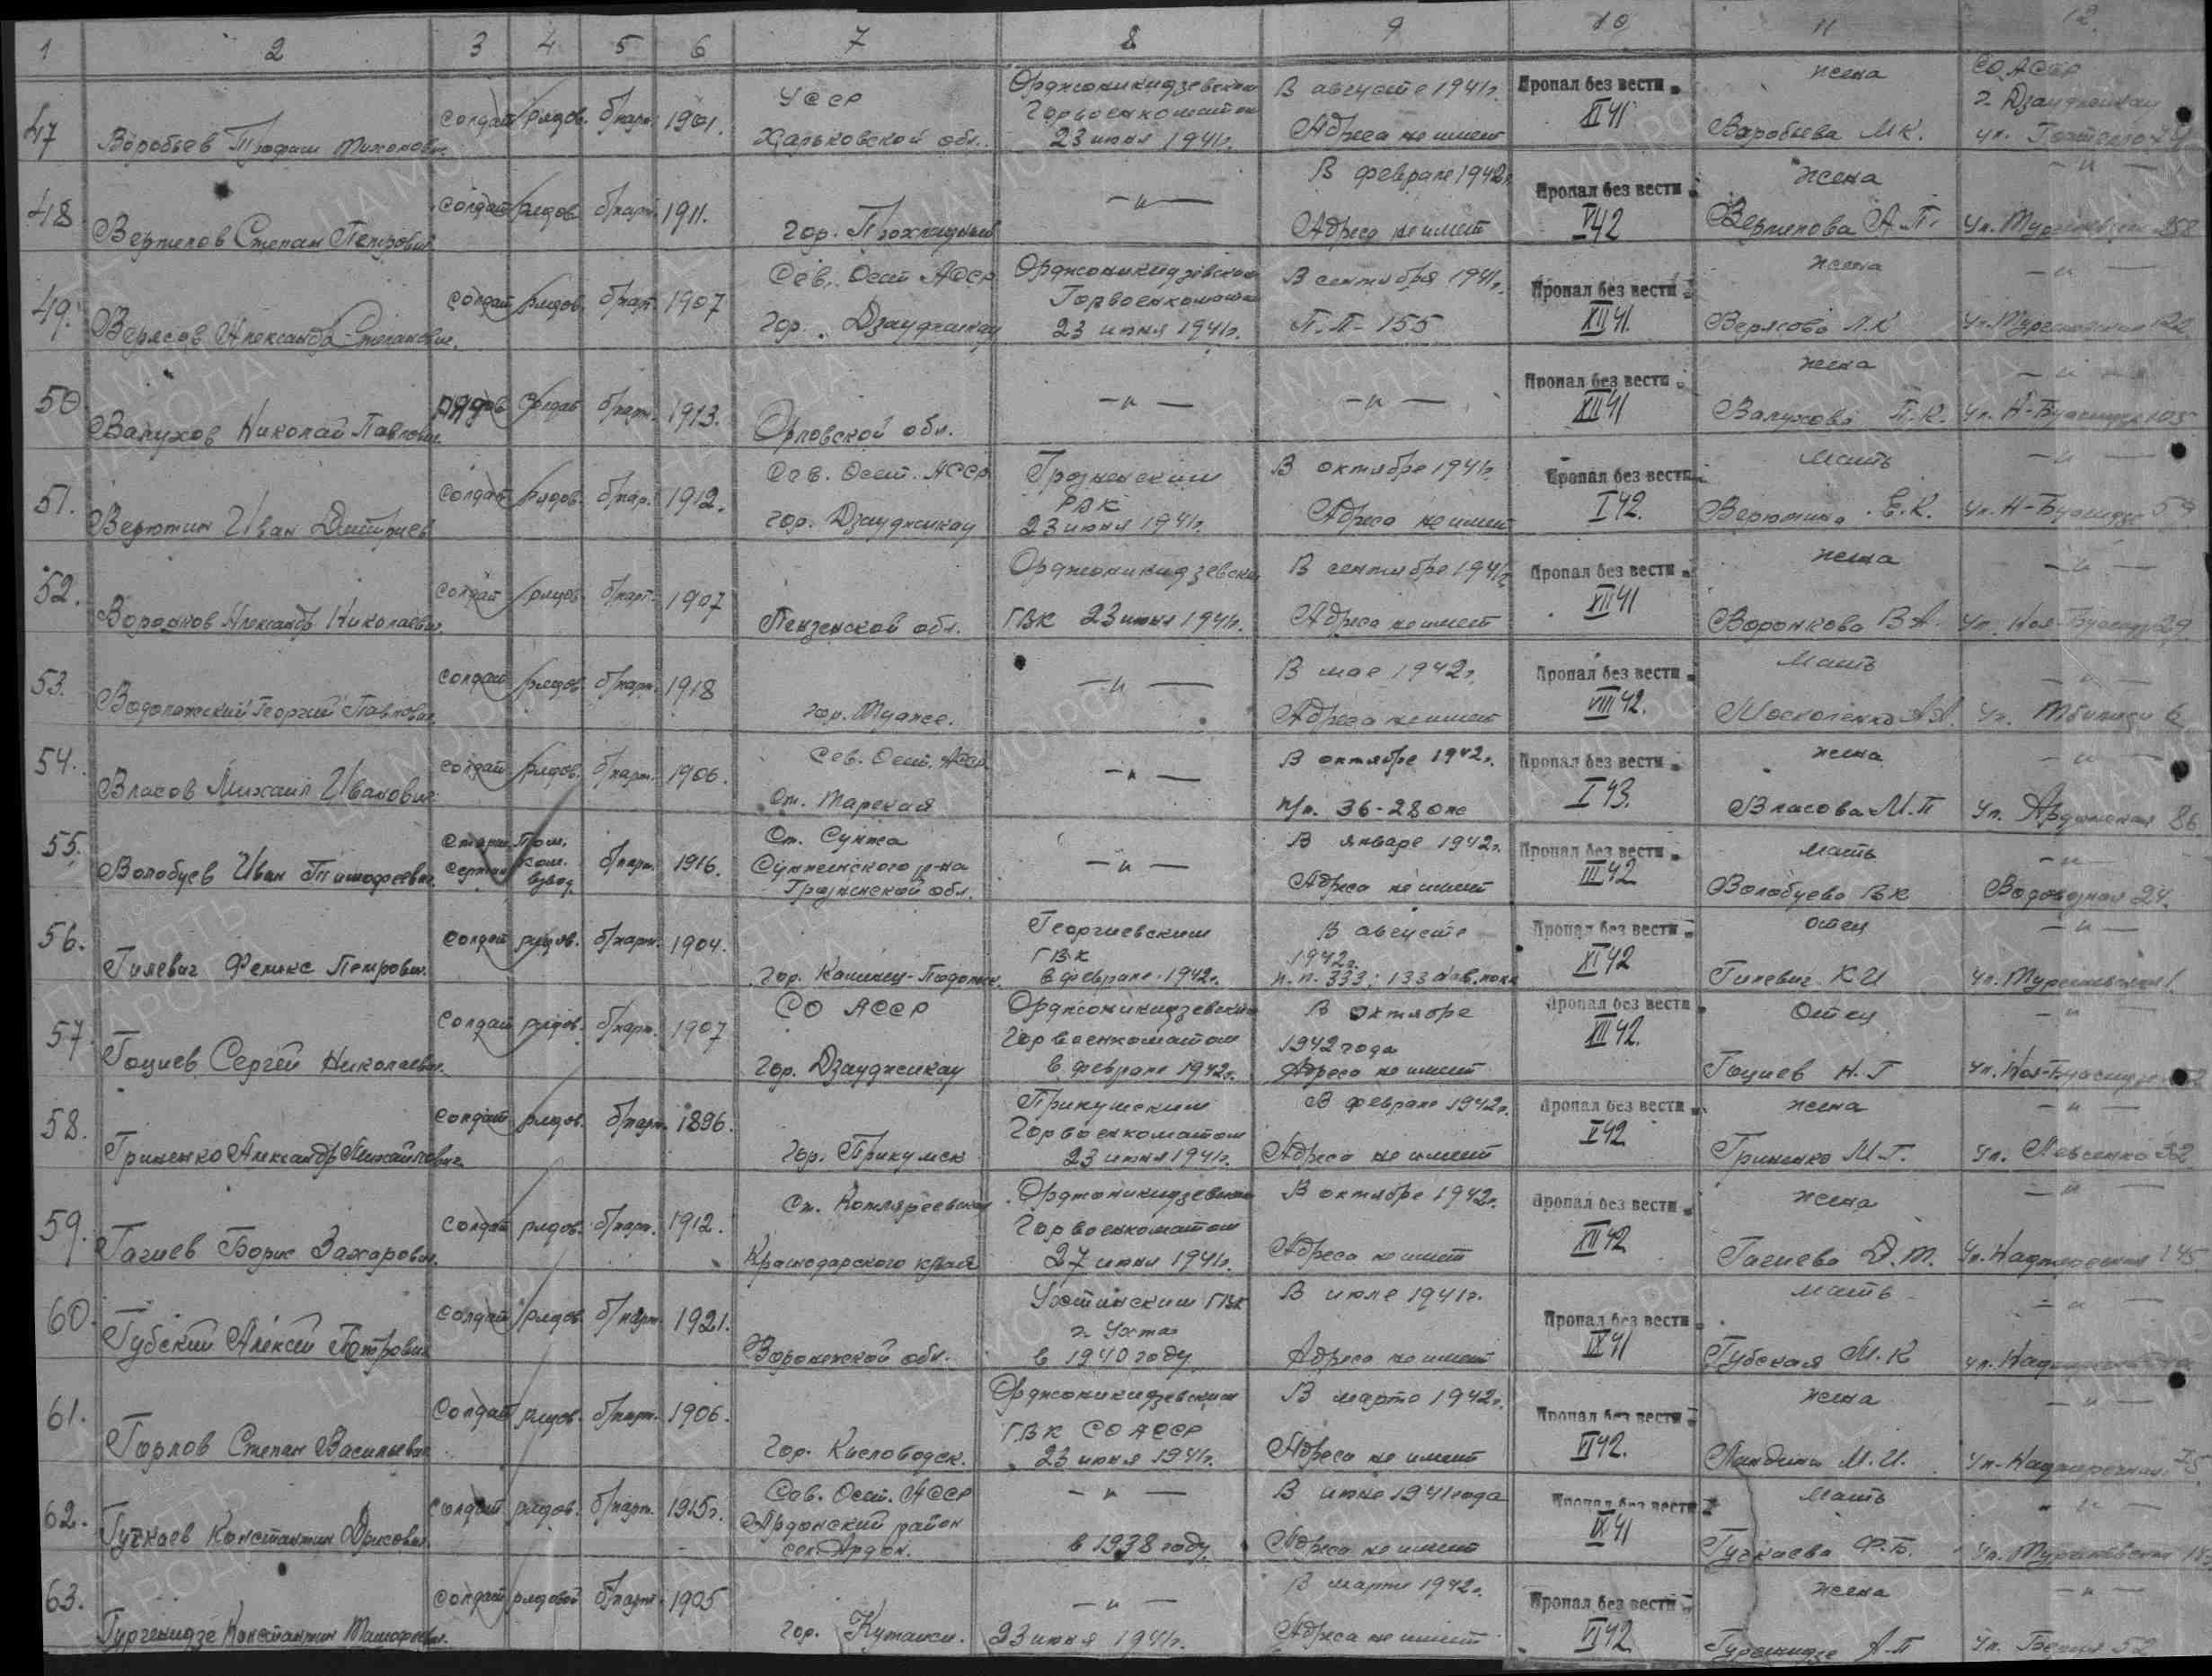 1 2 3 4 5 6 7 8 9 10 11 12
47 Воробьев Трофим Тихонович солдат рядов. б/парт. 1901. УССР Харьковской обл. Орджоникидзевским Горвоенкоматом 23 июня 1941г. В августе 1941г. Адреса не имеет Пропал без вести XI 41 жена Воробьева М.К. СО АССР г. Дзауджикау ул.
48 Вертепов Степан Петрович солдат рядов. б/парт. 1911. гор. Прохладный —"— В феврале 1942г. Адреса не имеет Пропал без вести V 42 жена Вертепова А.П. —"— ул. Тургеневская 258
49. Верясов Александр Степанович. солдат рядов. б/парт. 1907 Сев. Осет АССР гор. Дзауджикау Орджоникидзевским Горвоенкоматом 23 июня 1941г. В сентябре 1941г. П.П-155 Пропал без вести XII 41. жена Верясова Л.К —"— ул. Тургеневская
50. Валухов Николай Павлович. рядов солдат б/парт. 1913. Орловской обл. —"— —"— Пропал без вести XII 41 жена Валухова П.К. —"— ул. Н-Буачидзе 105
51. Верютин Иван Дмитриев солдат рядов. б/пар. 1912. Сев. Осет. АССР гор. Дзауджикау Грозненским РВК 23 июня 1941г. В октябре 1941г. Адреса не имеет Пропал без вести I 42. мать Верютина Е.К. —"— ул. Н-Буачидзе 59
52. Воронков Александр Николаевич. солдат рядов. б/парт. 1907 Пензенской обл. Орджоникидзевским ГВК 23 июня 1941г. В сентябре 1941г. Адреса не имеет Пропал без вести XII 41 жена Воронкова В.А. —"— ул. Ноя-Буачидзе 29
53. Водолажский Георгий Павлович. солдат рядов. б/парт. 1918 гор. Туапсе. —"— В мае 1942г. Адреса не имеет Пропал без вести VIII 42. мать Москаленко А.А. —"— ул. Тбилиси 6
54. Власов Михаил Иванович солдат рядов. б/парт. 1906. Сев. Осет. АССР. Ст. Тарская —"— В октябре 1942г. п/п. 36-28 опс Пропал без вести I 43. жена Власова М.П —"— ул. Ардонская 86
55. Волобуев Иван Тимофеевич. Старш. сержан Пом. ком. взвод. б/парт. 1916. Ст. Сунжа Сунженского р-на Грозненской обл. —"— В январе 1942г. Адреса не имеет Пропал без вести III 42 мать Волобуева В.К —"— Водопроводная 24.
56. Гилевич Феликс Петрович. солдат рядов. б/парт. 1904. гор. Каменец-Подольск. Георгиевским ГВК в феврале 1942г. В августе 1942г. п.п. 333; 133 Пропал без вести XI 42 отец Гилевич К.И —"— ул. Тургеневская 1.
57. Гоциев Сергей Николаевич. солдат рядов. б/парт. 1907 СО АССР гор. Дзауджикау Орджоникидзевским Горвоенкоматом в феврале 1942г. В октябре 1942 года Адреса не имеет Пропал без вести XII 42. Отец Гоциев Н.Г —"— ул. Ноя-Буачидзе
58. Гриненко Александр Михайлович. солдат рядов. б/парт. 1896. гор. Прикумск Прикумским Горвоенкоматом 23 июня 1941г. В феврале 1942г. Адреса не имеет Пропал без вести V 42 жена Гриненко М.Г. —"— ул. 32
59. Гагиев Борис Захарович. солдат рядов. б/парт. 1912. Ст. Котляревская Краснодарского края Орджоникидзевским Горвоенкоматом 27 июня 1941г. В октябре 1942г. Адреса не имеет Пропал без вести XII 42 жена Гагиева Д.Т. —"— ул. 145
60. Губский Алексей Петрович солдат рядов. б/парт. 1921. Воронежской обл. Ухтинским ГВК г. Ухта в 1940 году В июле 1941г. Адреса не имеет Пропал без вести IX 41 мать Губская М.К —"— ул.
61. Горлов Степан Васильевич солдат рядов. б/парт. 1906. гор. Кисловодск. Орджоникидзевским ГВК СО АССР 23 июня 1941г. В марте 1942г. Адреса не имеет Пропал без вести VI 42. жена М.И. —"— ул.
62. Гучкаев Константин Дрисович. солдат рядов. б/парт. 1915г. Сев. Осет. АССР Ардонский район сел. Ардон. —"— в 1938 году В июне 1941 года Адреса не имеет Пропал без вести IX 41 мать Гучкаева Ф.Б. —"— ул. Тургеневская
63. Гургенидзе Константин Тимофеевич. солдат рядовой б/парт. 1905 гор. Кутаиси. —"— 23 июня 1941г. В марте 1942г. Адреса не имеет Пропал без вести VI 42 жена Гургенидзе А.П —"— ул. 52